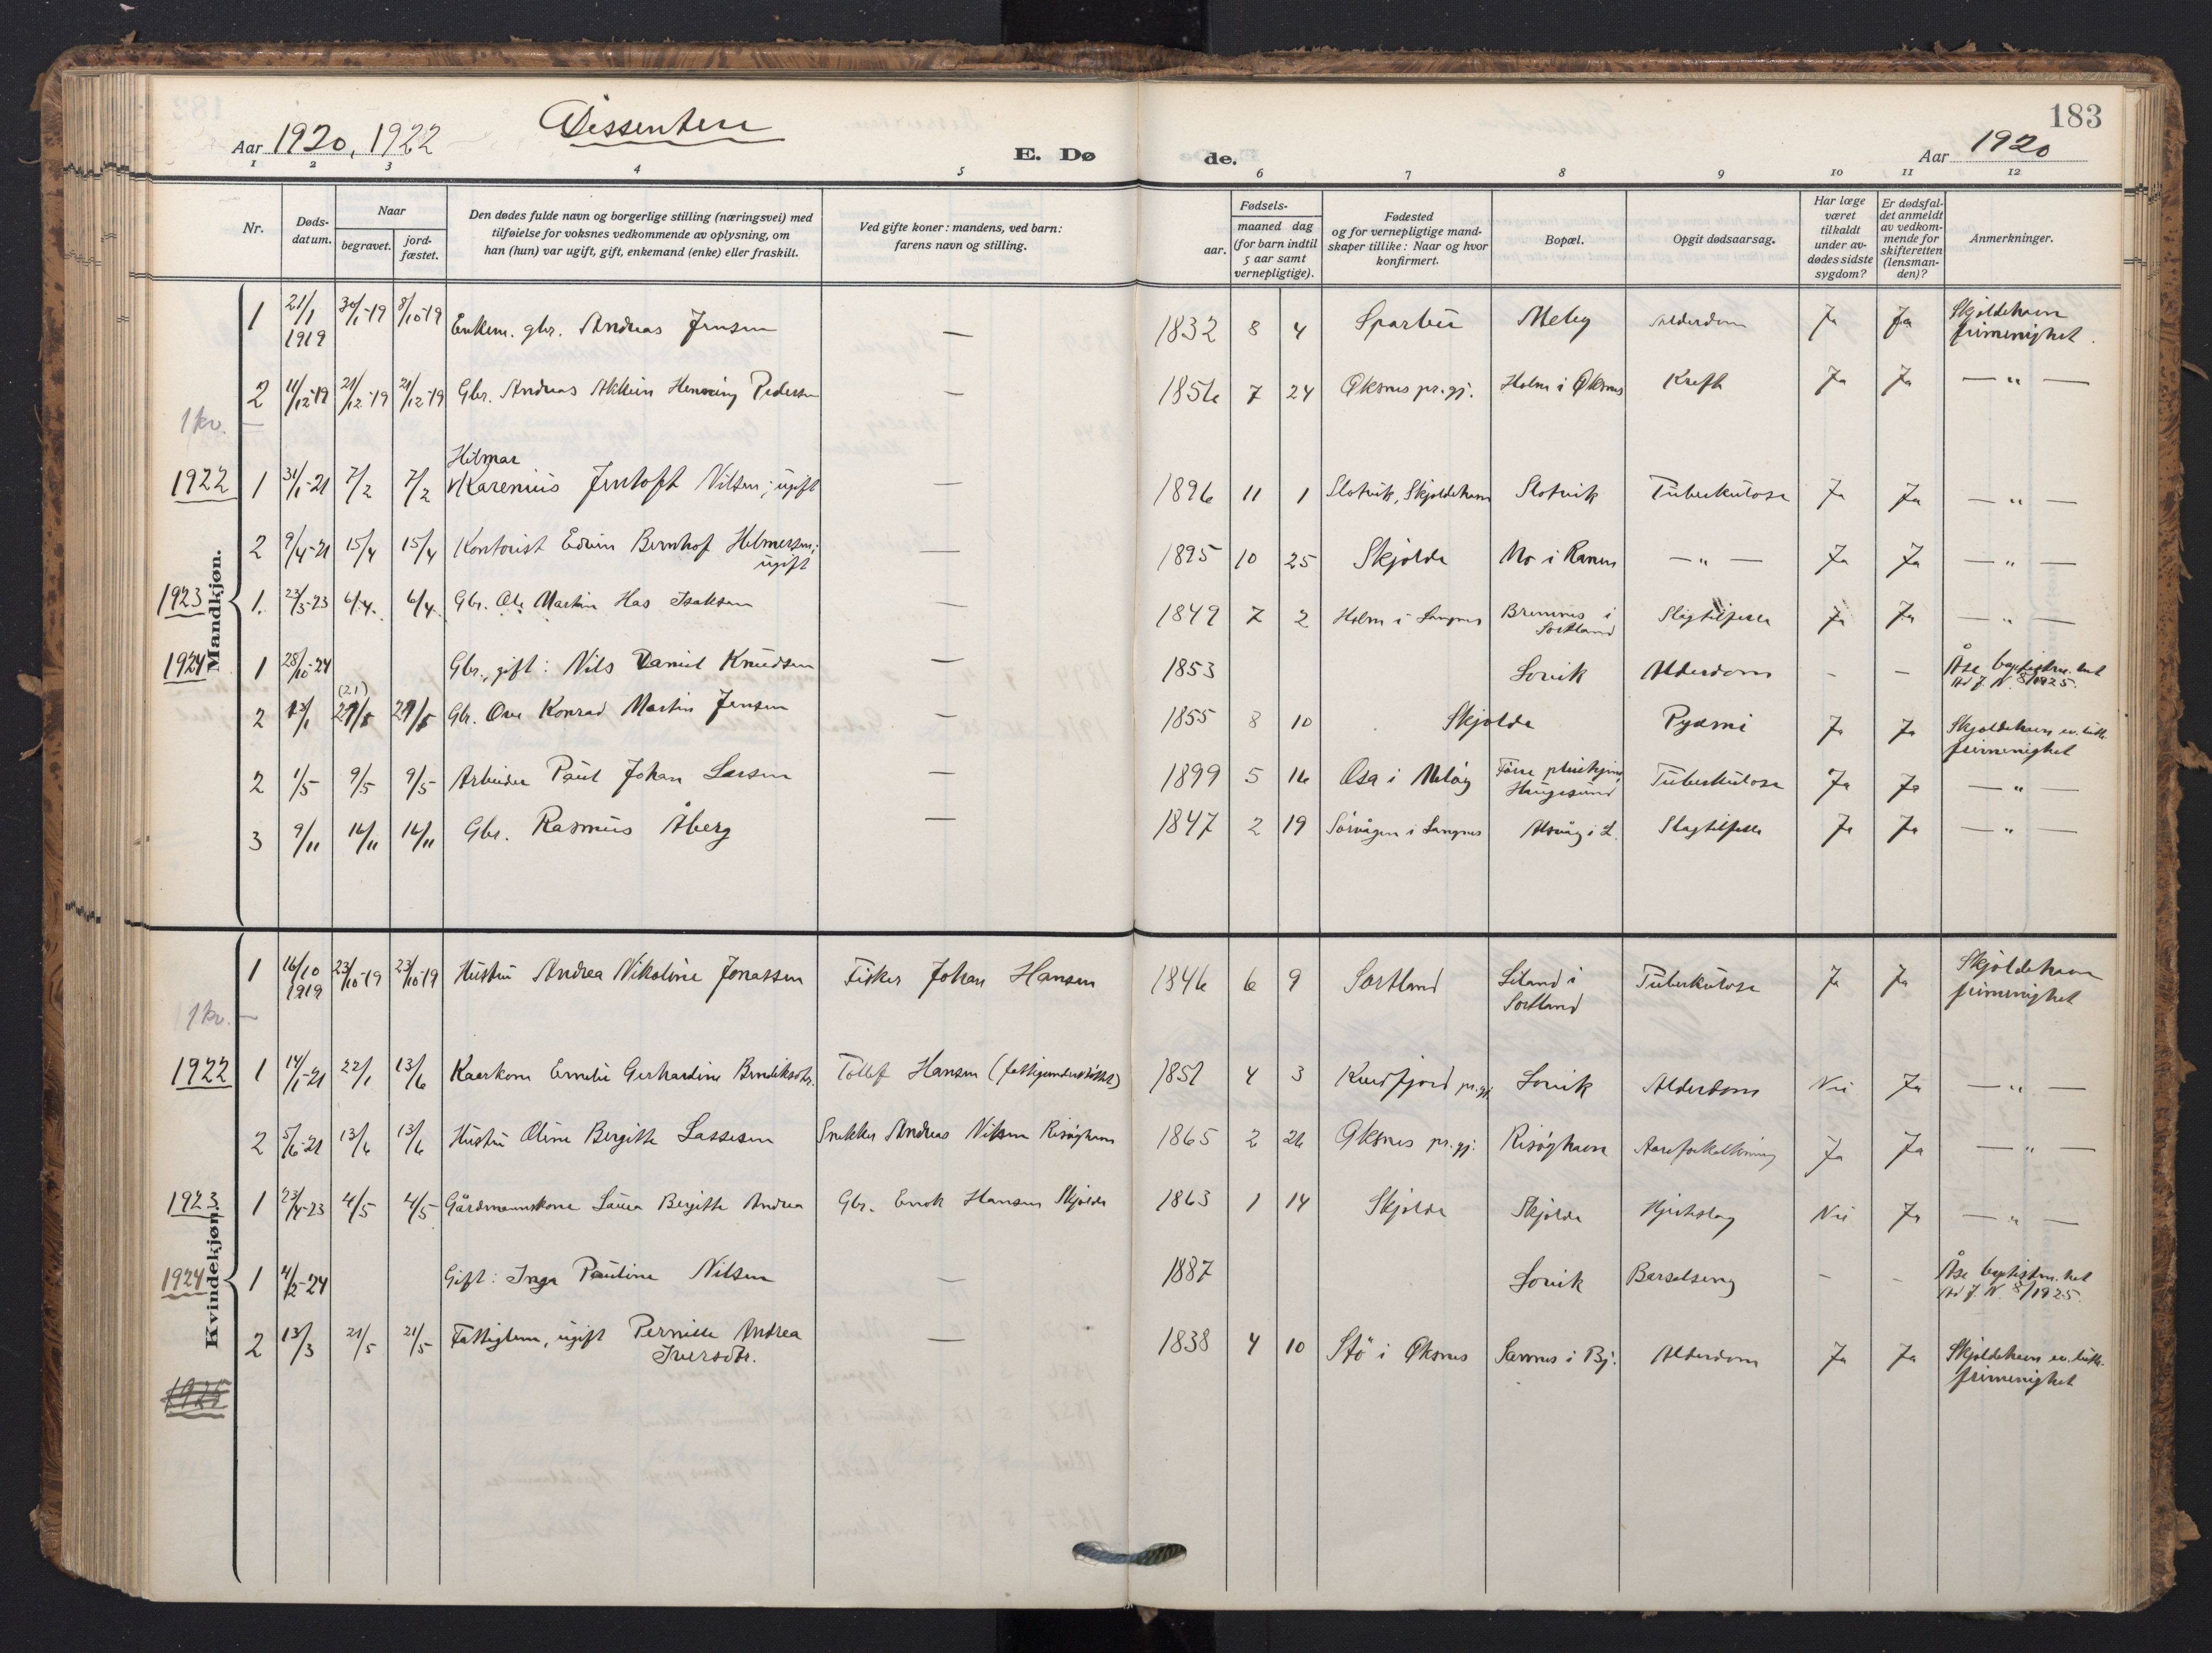 183
Aar 1920, 1922 Dissentere E. Dø de. Aar 1920
1 2 3 4 5 6 7 8 9 10 11 12
Nr.
Døds-
datum.
Naar
begravet.
jord-
fæstet.
Den dødes fulde navn og borgerlige stilling (næringsvei) med
tilføielse for voksnes vedkommende av oplysning, om
han (hun) var ugift, gift, enkemand (enke) eller fraskilt.
Ved gifte koner: mandens, ved barn:
farens navn og stilling.
Fødsels-
aar.
maaned dag
(for barn indtil
5 aar samt
vernepligtige).
Fødested
og for vernepligtige mand-
skaper tillike: Naar og hvor
konfirmert.
Bopæl.
Opgit dødsaarsag.
Har læge
været
tilkaldt
under av-
dødes sidste
sygdom?
Er dødsfal-
det anmeldt
av vedkom-
mende for
skifteretten
(lensman-
den)?
Anmerkninger.
Mandkjøn.
1 21/1 1919 30/1-19 8/10-19 Enkem. gbr. Andreas Jensen — 1832 8 4 Sparbu Meby Alderdom Ja Ja Skjoldehavn
frimenighet.
2 11/12-19 21/12-19 21/12-19 Gbr. Andreas Henning Pedersen — 1856 7 24 Øksnes pr.gj. Holm i Øksnes Kreft Ja Ja — " —
1 kv. —
Hilmar
1922 1 31/1-21 7/2 7/2 Karenius Jentoft Nilsen; ugift — 1896 11 1 Slotvik, Skjoldehavn Slotvik Tuberkulose Ja Ja — " —
2 9/4-21 15/4 15/4 Kontorist Edvin Bernhof Helmersen;
ugift — 1895 10 25 Skjolde Mo i Ranen — " — Ja Ja — " —
1923 1. 23/3-23 6/4. 6/4. Gbr. Ole Martin Has Isaksen — 1849 7 2 Holm i Langnes Bremnes i
Sortland Slagtilfelle Ja Ja — " —
1924 1 28/10-24 Gbr., gift: Nils Daniel Knudsen — 1853 Lovik Alderdom - — Åse baptistm.het
8/1925.
2 13/1 (21) 21/5 21/5 Gbr. Ove Konrad Martin Jensen — 1855 8 10 Skjolde Pyæmi Ja Ja Skjoldehavn ev. luth.
frimenighet
2 1/5 9/5 9/5 Arbeider Paul Johan Larsen — 1899 5 16 Osa i Meløy Førre pleiehjem,
Haugesund Tuberkulose Ja Ja — " —
3 9/11 16/11 16/11 Gbr. Rasmus Åberg — 1847 2 19 Sørvågen i Langnes Alsvåg i L. Slagtilfelle Ja Ja — " —
Kvindekjøn.
1 16/10 1919 23/10-19 23/10-19 Hustru Andrea Nikoline Jonassen Fisker Johan Hansen 1846 6 9 Sortland Liland i
Sortland Tuberkulose Ja Ja Skjoldehavn
frimenighet
1 kv. —
1922 1 14/1-21 22/1 13/6 Kaarkone Emelie Gerhardine Bendiksdtr. Tollef Hansen (fattigunderstøttet) 1851 4 3 Kvedfjord pr.gj. Lovik Alderdom Nei Ja — " —
2 5/6-21 13/6 13/6 Hustru Oline Bergitte Lassesen Snekker Andreas Nilsen Risøyhavn 1865 2 26 Øksnes pr.gj. Risøyhavn Aareforkalkning Ja Ja — " —
1923 1 23/4-23 4/5 4/5 Gårdmannskone Laura Bergitte Andrea Gbr. Enok Hansen Skjolde 1863 1 14 Skjolde Skjolde Hjerteslag Nei Ja — " —
1924 1 4/2-24 Gift: Inga Pauline Nilsen — 1887 Lovik Barselseng - - Åse baptistm.het
8/1925.
2 13/3 21/5 21/5 Fattiglem, ugift Pernille Andrea
Iversdtr. — 1838 4 10 Stø i Øksnes Sannes i Bj. Alderdom Ja Ja Skjoldehavn ev. luth.
frimenighet
1925